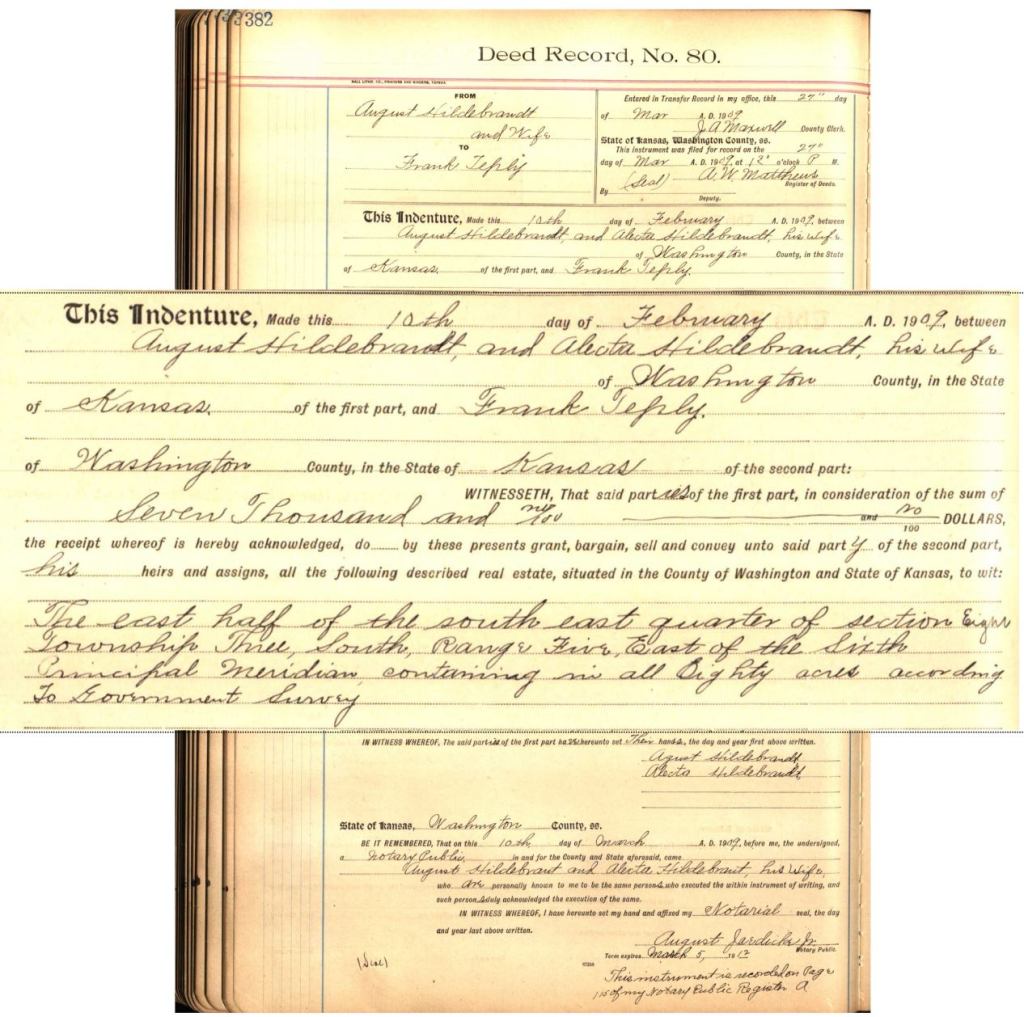 382
Deed Record, No. 80.
HALL LITHO. CO., PRINTERS AND BINDERS, TOPEKA.
FROM
August Hildebrandt
and Wife
TO
Frank Teply
Entered in Transfer Record in my office, this 27" day
of Mar A. D. 1909
J A Maxwell County Clerk.
State of Kansas, Washington County, ss.
This instrument was filed for record on the 27"
day of Mar A. D. 1909, at 12 o'clock P M.
(Seal) A. W. Matthews
Register of Deeds.
By
Deputy.
This Indenture, Made this 10th day of February A. D. 1909, between
August Hildebrandt, and Alecta Hildebrandt, his wife
of Washington County, in the State
of Kansas. of the first part, and Frank Teply.
This Indenture, Made this 10th day of February A. D. 1909, between
August Hildebrandt, and Alecta Hildebrandt, his wife
of Washington County, in the State
of Kansas. of the first part, and Frank Teply.
of Washington County, in the State of Kansas of the second part:
WITNESSETH, That said parties of the first part, in consideration of the sum of
Seven Thousand and no/100 and no/100 DOLLARS,
the receipt whereof is hereby acknowledged, do by these presents grant, bargain, sell and convey unto said party of the second part,
his heirs and assigns, all the following described real estate, situated in the County of Washington and State of Kansas, to wit:
The east half of the south east quarter of section Eight
Township Three, South, Range Five, East of the Sixth
Principal Meridian, containing in all Eighty acres according
To Government Survey
IN WITNESS WHEREOF, The said parties of the first part have hereunto set Their hands, the day and year first above written.
Agust Hildebrandt
Alecta Hildebrandt
State of Kansas, Washington County, ss.
BE IT REMEMBERED, That on this 10th day of March A. D. 1909, before me, the undersigned,
a Notary Public, in and for the County and State aforesaid, came
August Hildebrant and Alecta Hildebrant, his Wife,
who are personally known to me to be the same persons who executed the within instrument of writing, and
such persons duly acknowledged the execution of the same.
IN WITNESS WHEREOF, I have hereunto set my hand and affixed my Notarial seal, the day
and year last above written.
August Jaedicke Jr.
Notary Public.
Term expires March 5, 1912
(Seal)
This instrument is recorded on Page
115 of my Notary Public Register A